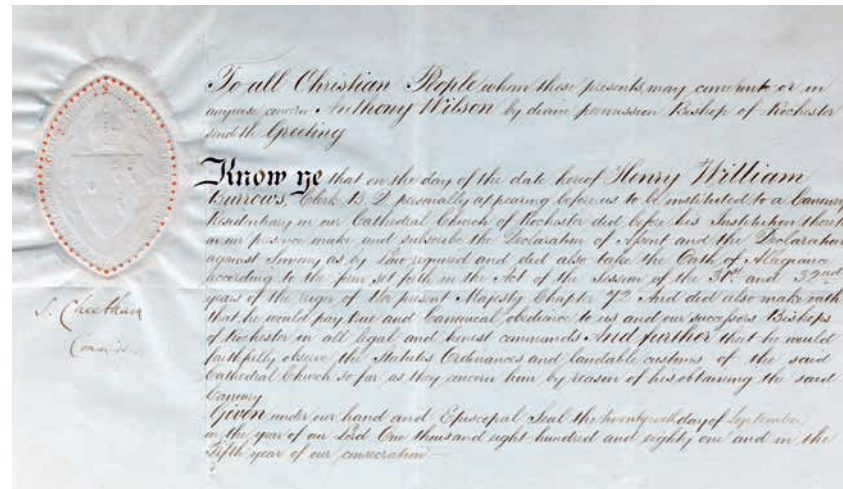 To all Christian People whom these presents may come unto or in
anywise concern Anthony Wilson by divine permission Bishop of Rochester
sendeth Greeting
Know ye that on the day of the date hereof Henry William
Burrows, Clerk B. D. personally appearing before us to be instituted to a Canonry
Residentiary in our Cathedral Church of Rochester did before his Institution thereto
in our presence make and subscribe the Declaration of Assent and the Declaration
against Simony as by Law required and did also take the Oath of Allegiance
according to the form set forth in the Act of the Session of the 31st and 32nd
years of the reign of Her present Majesty Chapter 72 And did also make oath
that he would pay true and Canonical obedience to us and our successors Bishops
of Rochester in all legal and honest commands And further that he would
faithfully observe the Statutes Ordinances and laudable customs of the said
Cathedral Church so far as they concern him by reason of his obtaining the said
Canonry
Given under our hand and Episcopal Seal the day of September
in the year of our Lord One thousand eight hundred and eighty one and in the
Fifth year of our consecration
S. Cheetham